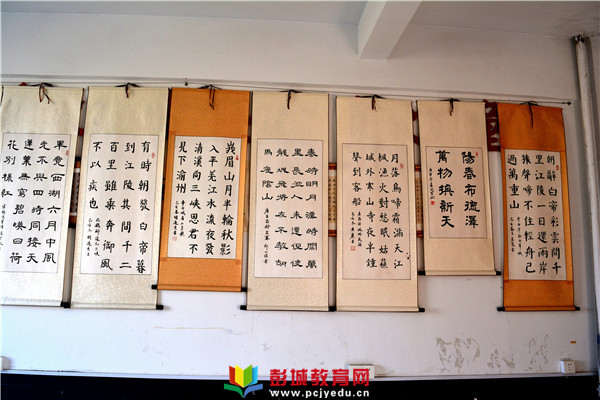 朝辭白帝彩雲間千
里江陵一日還兩岸
猿聲啼不住輕舟已
過萬重山
陽春布德澤
萬物換新天
月落烏啼霜滿天江
楓漁火對愁眠姑蘇
城外寒山寺夜半鐘
聲到客船
秦時明月漢時關萬
里長征人未還但使
龍城飛將在不教胡
馬度陰山
峨眉山月半輪秋影
入平羌江水流夜發
清溪向三峽思君不
見下渝州
有時朝發白帝暮
到江陵其間千二
百里雖乘奔御風
不以疾也
畢竟西湖六月中風
光不與四時同接天
蓮葉無窮碧映日荷
花別樣紅
彭城教育网
www.pcjyedu.cn